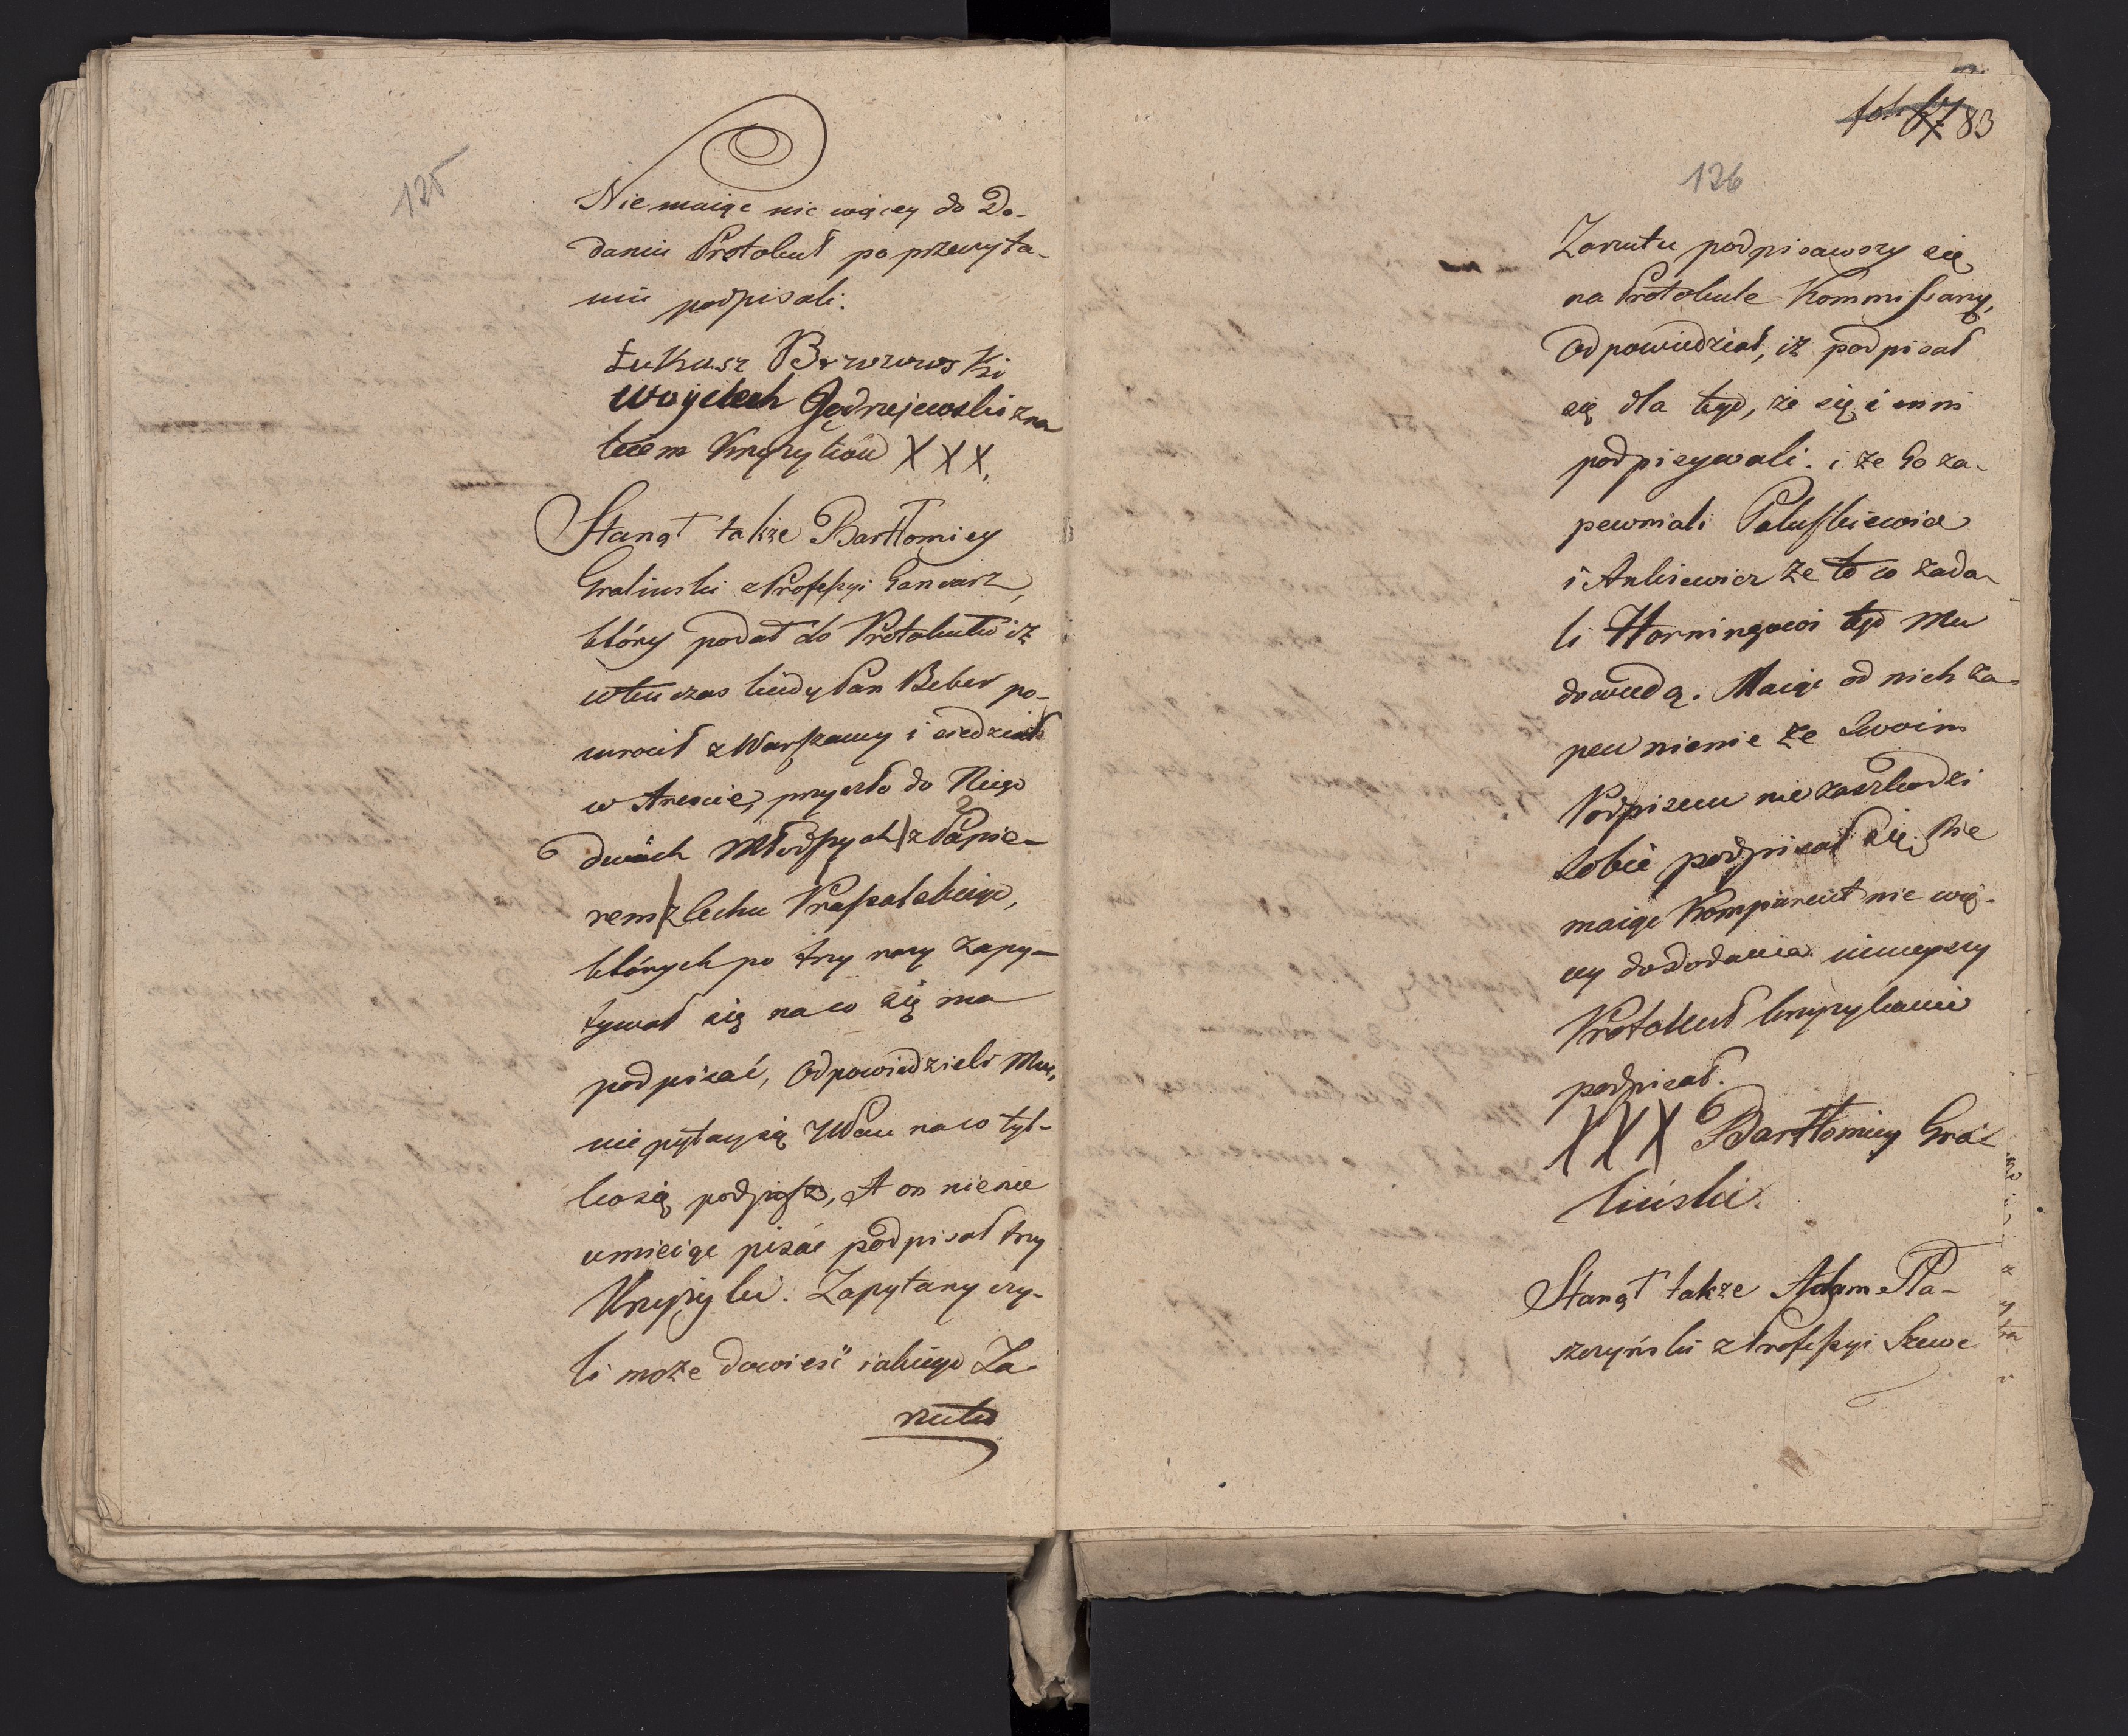 125
Nie maiąc nic więcey do Do-
daniu Protokuł po przeczyta-
niu podpisali.
Łukasz Brzozowski
Woyciech Jędrzejewski zna
kiem Krzyżyków XXX,
Stanął także Bartłomiey
Graliński z Professyi Garncarz,
który podał do Protokułu iż
wten czas kiedy Pan Beber po-
wrócił z Warszawy i siedział
w Areście, przyszło do Niego
dwóch Młodszych z Papie-
rem z Cechu
których po trzy razy zapy-
tywał się na co się ma
podpisać, Odpowiedzieli Mu,
nie pytay się WPan na co tyl-
ko się podpisz, A on nienie
umieiąc pisać podpisał trzy
Krzyżyki. Zapytany czy-
li może dowieść iakiego Za-
rzutu
fol: 67 83
126
Zarzutu podpisawszy się
na Protokule Kommissarzy,
Odpowiedział, iż podpisał
się dla tego, że się i inni
podpisywali. i że Go za-
pewniali Paluszkiewicz
i Ankiewicz że to co zada-
li Horningowi tego Mu
dowiedą. Maiąc od nich za-
pewnienie że Swoim
Podpisem nie zaszkodzi
sobie podpisał się. Nie
maiąc Komparent nic wię-
cey do dodania ninieyszy
Protokuł krzyżykami
podpisał.
XXX Bartłomiey Gra-
liński.
Stanął także Adam Pła-
szczyński z Professyi Szewc